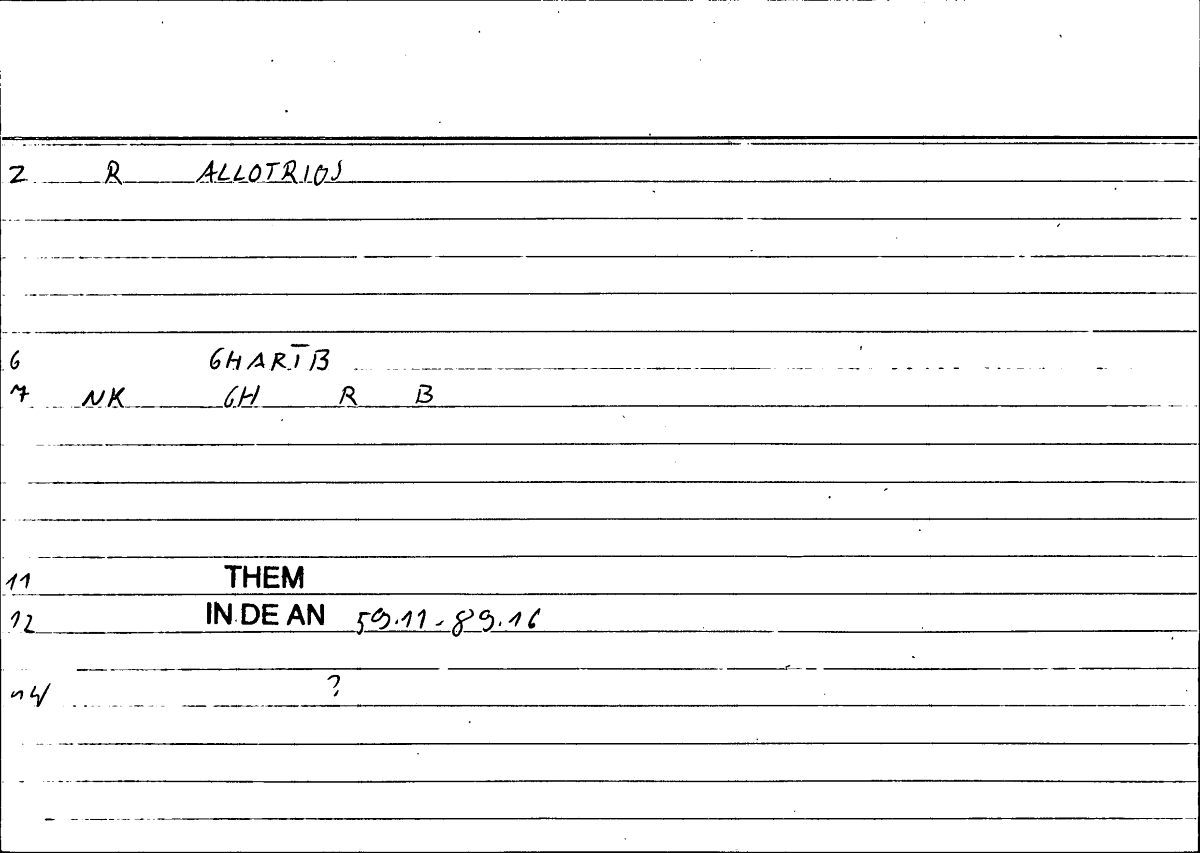 2 R ALLOTRIOS
6 GHARĪB
7 NK GH R B
11 THEM
12 IN DE AN 59.11-89.16
14 ?